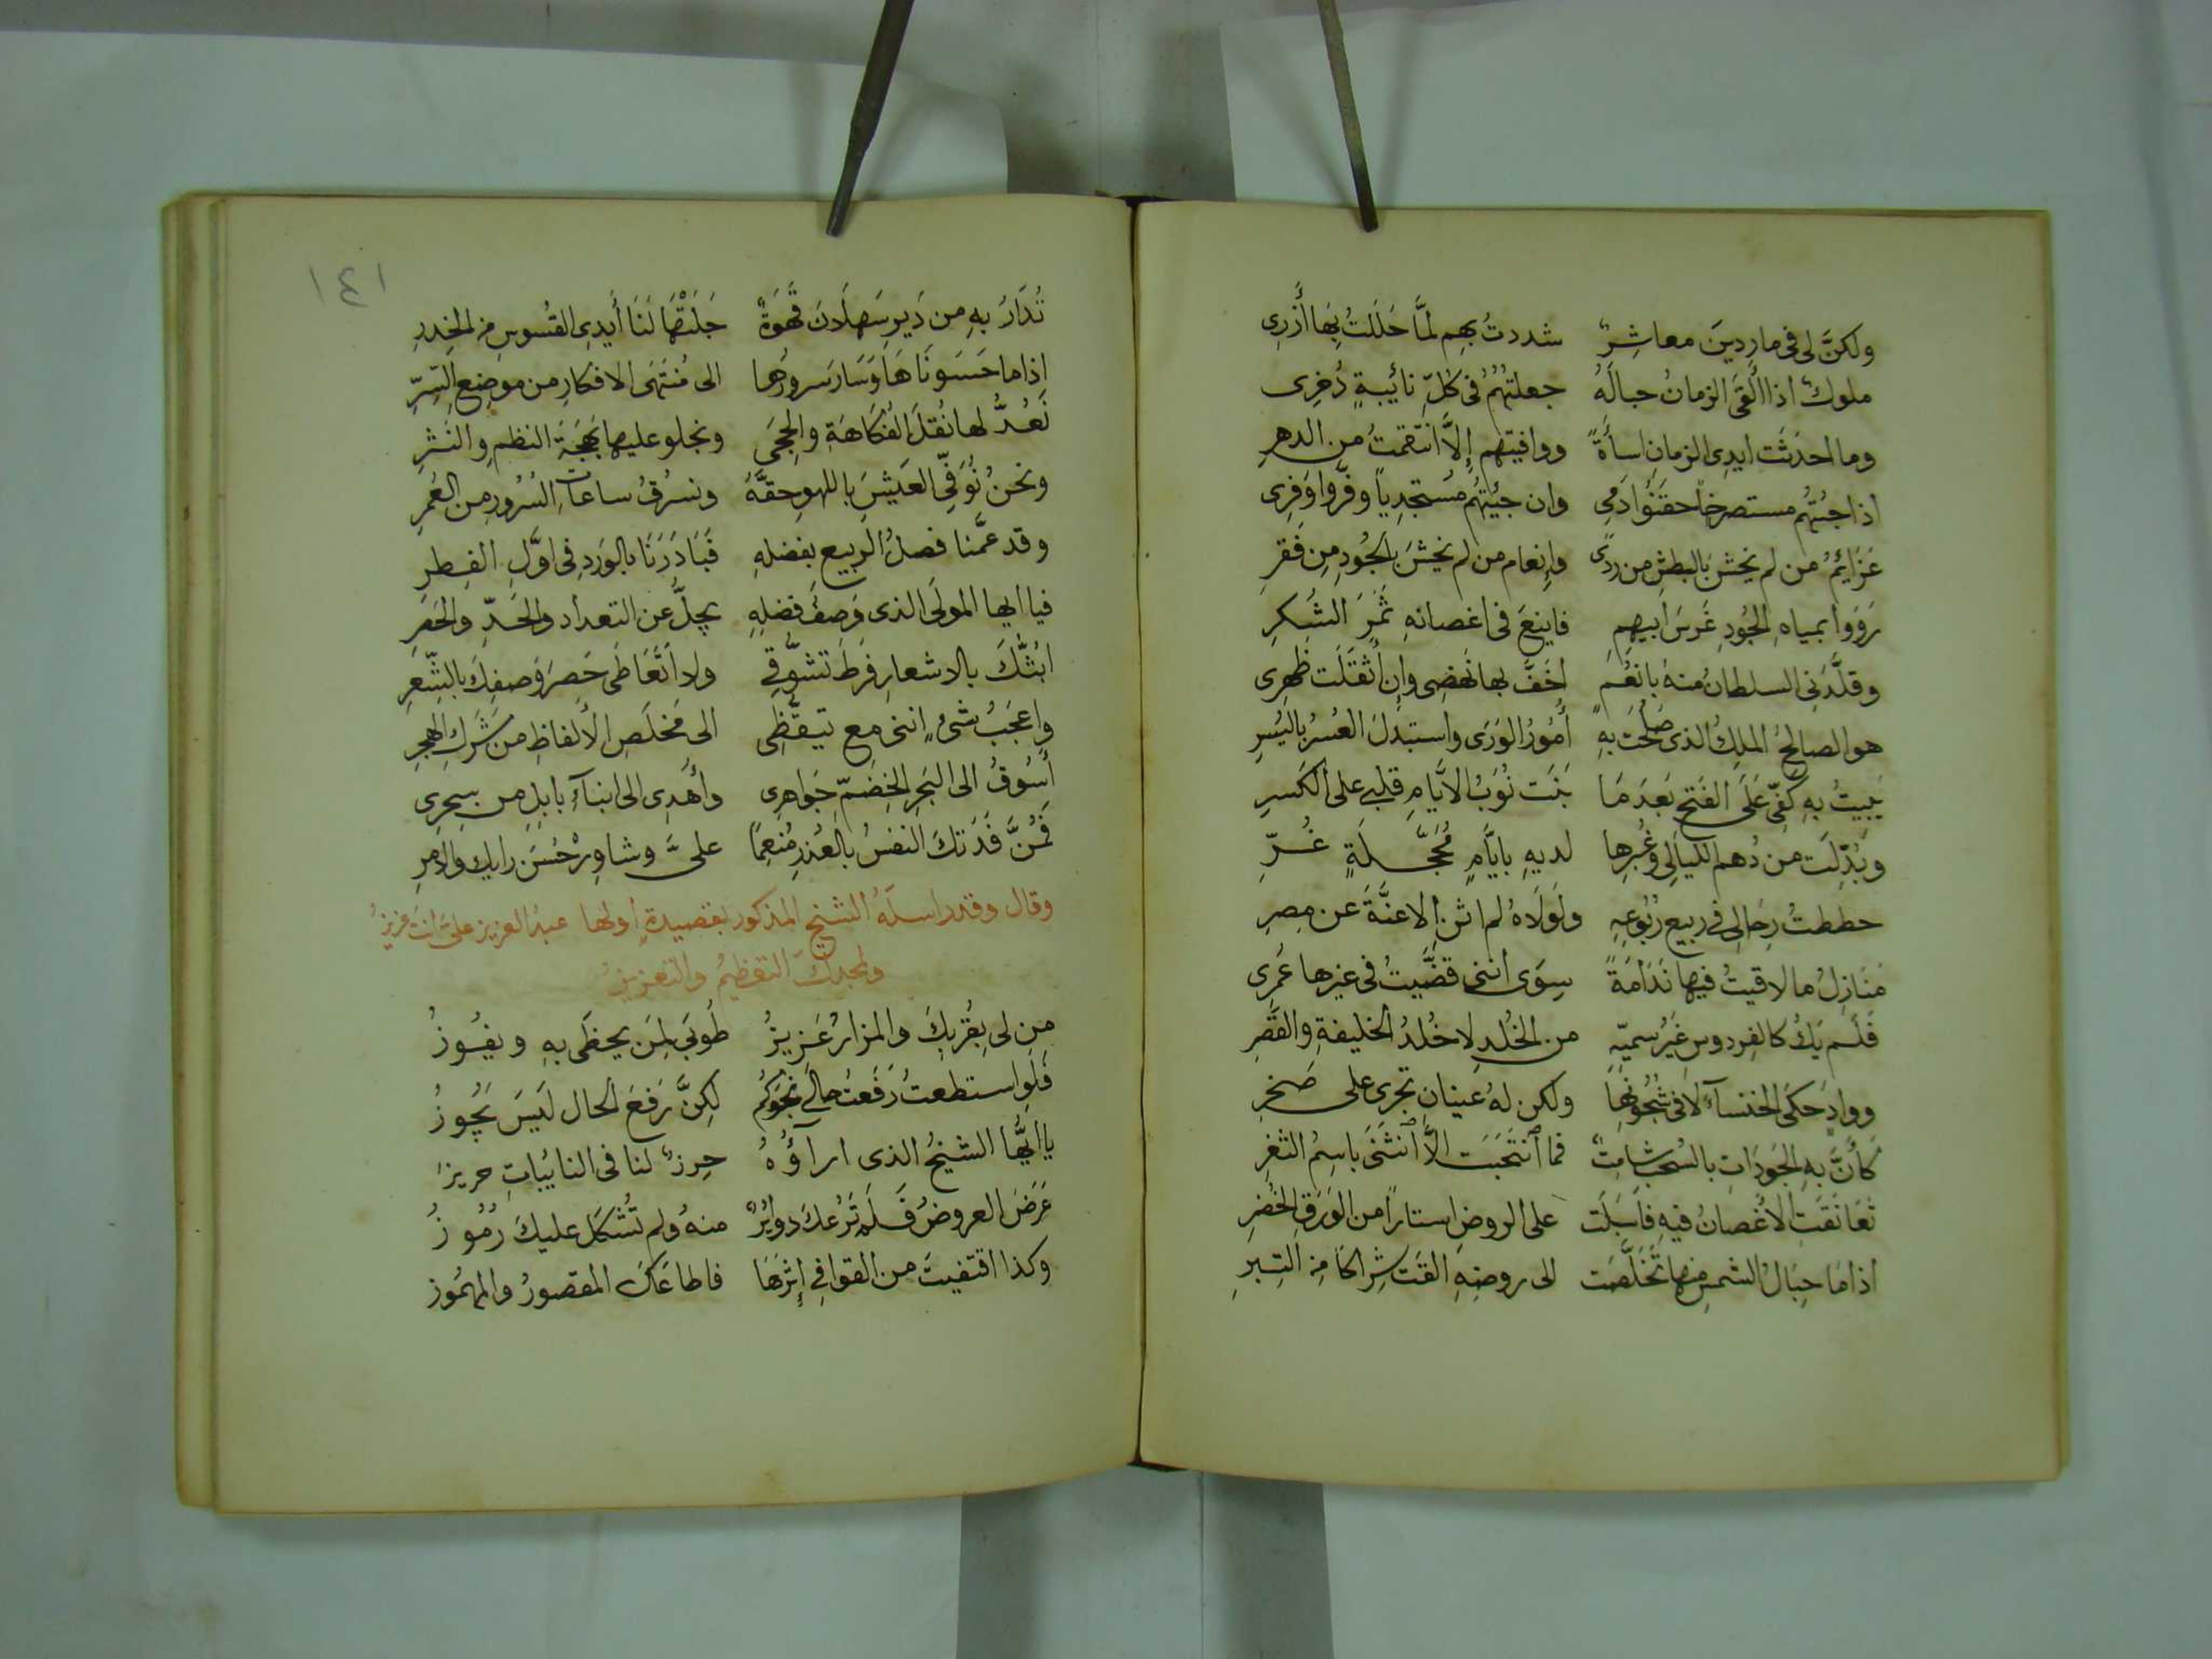 ولكنَّ لى فى ماردينَ معاشِرٌ شددتُ بهم لمَّا حَلَلتُ بِهَا أَزرِى
ملوك اذا أَلقَى الزمانُ حبالَهُ جعلتُهُمُ فى كلّ نائيبةٍ ذُخرِى
وما احدَثَت ايدِى الزمانِ اساَةً ووافيتهم إلَّا انتقمتُ من الدهرِ
اذا جئتُهُم مستصرخاً حقَنُوا دَمِى وان جئيتهُم مُستجدِياً وفّروا وَفرِى
عَزَايِمُ من لم يخشَ بالبطشِ من ردًى وإنعام من لم يخشَ بالجُودِ مِن فَقرِ
رَوَوا بمياهِ الجُودِ غَرسَ ابيهِمِ فاينعَ فى اغصانهِ ثَمَرَ الشُكرِ
وقلَّدَنِى السلطانُ منهُ بانعُمٍ اخَفَّ بها نَهضِى وإن أَثقَلَت ظهرِى
هو الصالحُ الملِكُ الذى صَلُحَت بهِ أُمُورُ الوَرَى واستبدَلَ العُسرُ باليُسرِ
يَبيتُ بهِ كَفِّى عَلَى الفَتحِ بَعدَمَا بَنَت نُوَبُ الايَّامِ قلبى على الكَسرِ
وبُدِّلَت من دُهم الليَالِى وغُبرِها لديهِ بايَّامٍ مُحَجَّلَةٍ غُرِّ
حططتُ رِحَالِى فى ربيعِ رُبُوعِهِ ولَولَاهُ لم اثنِ الاعنَّةَ عن مِصرِ
مَنَازِلُ ما لاقيتُ فيها نَدَامَةً سِوَى اننى قضَّيتُ فى غيرِها عُمرِى
فَلَم يَكُ كالفِردوسِ غَيرُ سميّهِ من الخُلدِ لا خُلدُ الخليفةِ والقَصرِ
ووادٍ حَكَى الخنسآءَ لا فى شُجُونِهَا ولكن لهُ عينانِ تجرى على صَخرِ
كأَنَّ بهِ الجَودَاتِ بالسُحبِ شامِتٌ فما انتَحَبَت الَّا انثَنَى باسِمُ الثغرِ
تَعَانَقَتِ الاغصانُ فيهِ فَاَسبَلَت على الروضِ استاراً من الوَرَقِ الخُضرِ
اذا مَا حِبَالُ الشمسِ منها تَخَلَّصَت الى روضهِ القَت شِرَاكَا مِن التِبرِ
١٤١
تُدَارُ بهِ من دَيرِ سَهلَانَ قَهوَةٌ جَلَتهَا لَنَا أَيدِى القُسوسِ من الخِدرِ
اذا ما حَسَونَاهَا وَسَارَ سرورُها الى مُنتَهَى الافكارِ من موضِعِ السِّرِّ
نَعُدُّ لها نُقلَ الفُكَاهَةِ والحِجَى ونجلو عليها بَهجَةَ النظمِ والنَثرِ
ونحنُ نُوَفِّى العَيشَ باللهو حقَّهُ ونسرُقُ ساعاتِ السُرُورِ من العُمرِ
وقد عمَّنا فصلُ الربيعِ بفضلهِ فَبَادَرَنَا بالوَردِ فى اوَّلِ الفِطرِ
فيا ايها المولَى الذى وَصفُ فضلِهِ يجلُّ عن التعدادِ والحَدِّ والحَصرِ
ابُثُّكَ بالاشعارِ فَرطَ تشوُّقِى ولا اتعَاطَى حَصرَ وَصفِكَ بالشِّعرِ
واعجَبُ شىءٍ اننى مع تيقُّظِى الى مَخلَصِ الالفاظِ من شَرَكِ الهجرِ
أَسُوقُ الى البَحرِ الخِضَمِّ جَوَاهرِى وأُهدِى الى ابنآءِ بابلِ من سِحرِى
فَمُنَّ فَدَتكَ النفسُ بالعُذرِ مُنعِمًا علىَّ وشاوِرْ حُسنَ رايك والامرِ
وقال وقد راسلَهُ الشيخ المذكور بقصيدةٍ اولها عبدُ العزيز علىَّ انتَ عزيزُ
ولمجدكَ التعظيمُ والتعزيزُ
من لى بِقُربكَ والمزارُ عَزيزُ طُوبَى لِمَن يحظَى بهِ ويفُوزُ
فَلَوِ استطعتُ رَفَعتُ حالى نحوَكُم لكِنَّ رَفعَ الحالِ لَيسَ يَجُوزُ
يا ايُّها الشيخُ الذى ارآؤُهُ حِرزٌ لنا فى النايباتِ حريزُ
عَرَضَ العروضُ فَلَم تَرُعكَ دوايرٌ منهُ ولم تُشكِل عليكَ رُمُوزُ
وكذا اقتفيتَ من القوافى إِثرَهَا فاطاعَكَ المقصورُ والمهمُوز